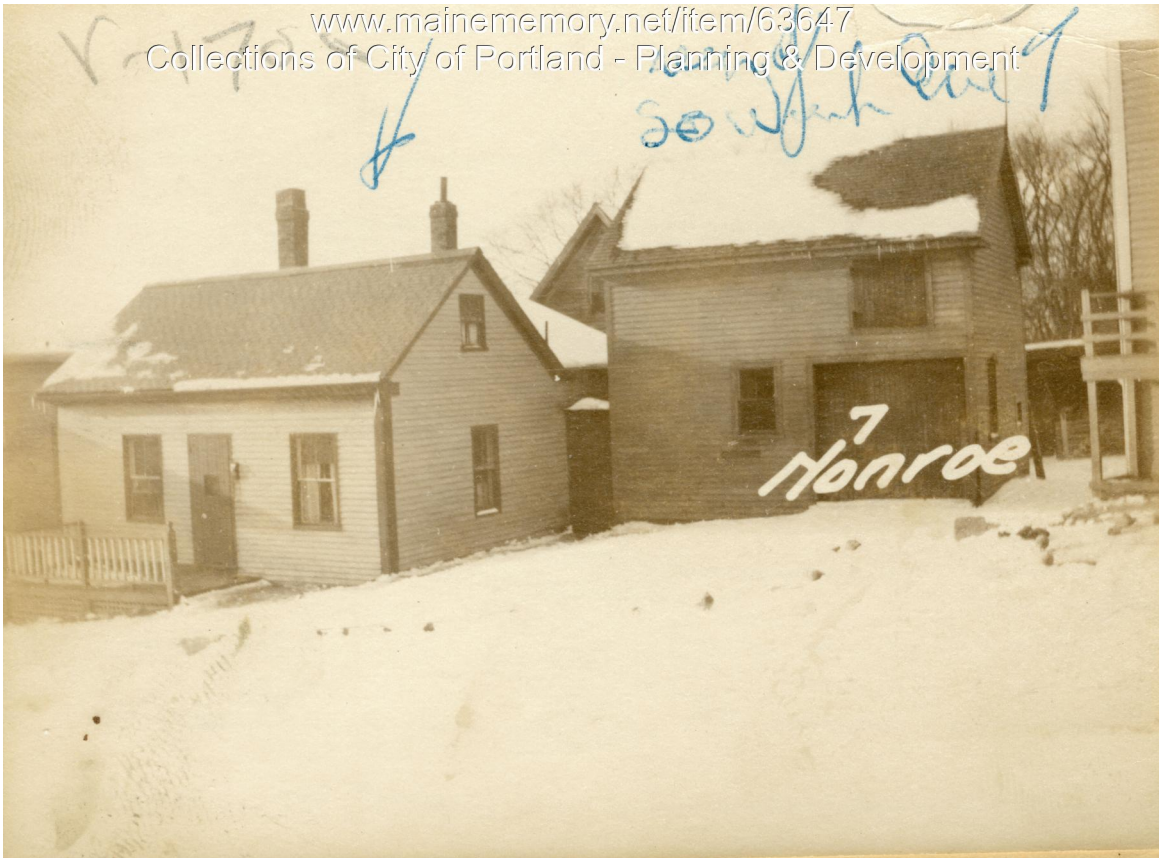 www.mainememory.net/item/63647
Collections of City of Portland - Planning & Development
and
7
Monroe